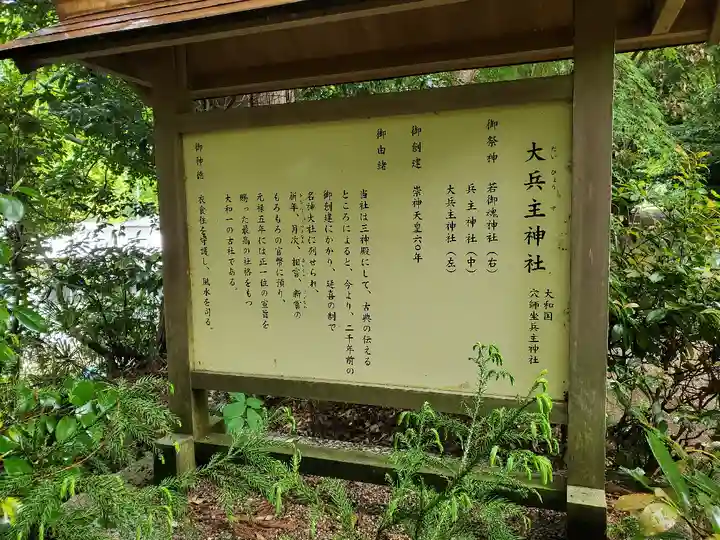 大兵主神社
だいひょうず
大和国
穴師坐兵主神社
御祭神　若御魂神社（右）
兵主神社（中）
大兵主神社（左）
御創建　崇神天皇六〇年
御由緒
当社は三神殿にして、古典の伝える
ところによると、今より、二千年前の
御創建にかかり、延喜の制で
名神大社に列せられ、
祈年、月次、相嘗、新嘗の
もろもろの官幣に預り、
元禄五年には正一位の宣旨を
賜った最高の社格をもつ
大和一の古社である。
御神徳　衣食住を守護し、風水を司る。